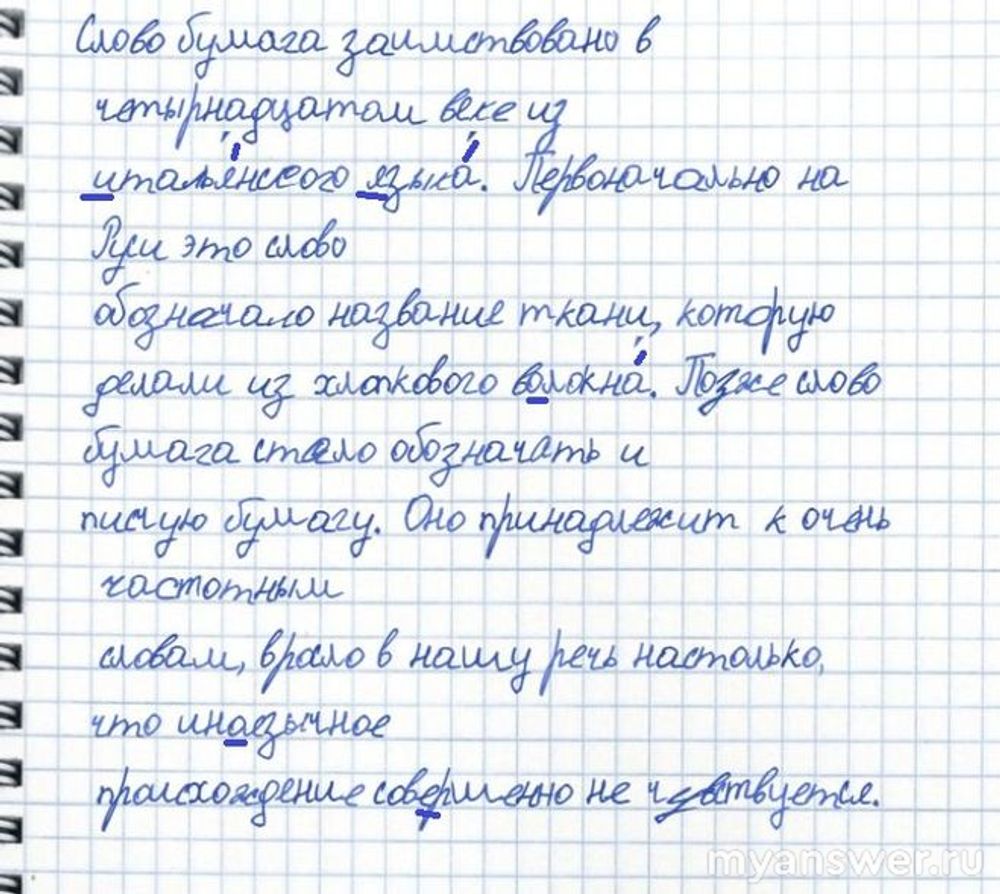 Слово бумага заимствовано в
четырнадцатом веке из
итальянского языка. Первоначально на
Руси это слово
обозначало название ткани, которую
делали из хлопкового волокна. Позже слово
бумага стало обозначать и
писчую бумагу. Оно принадлежит к очень
частотным
словам, вросло в нашу речь настолько,
что иназычное
происхождение совершенно не чувствуется.
myanswer.ru